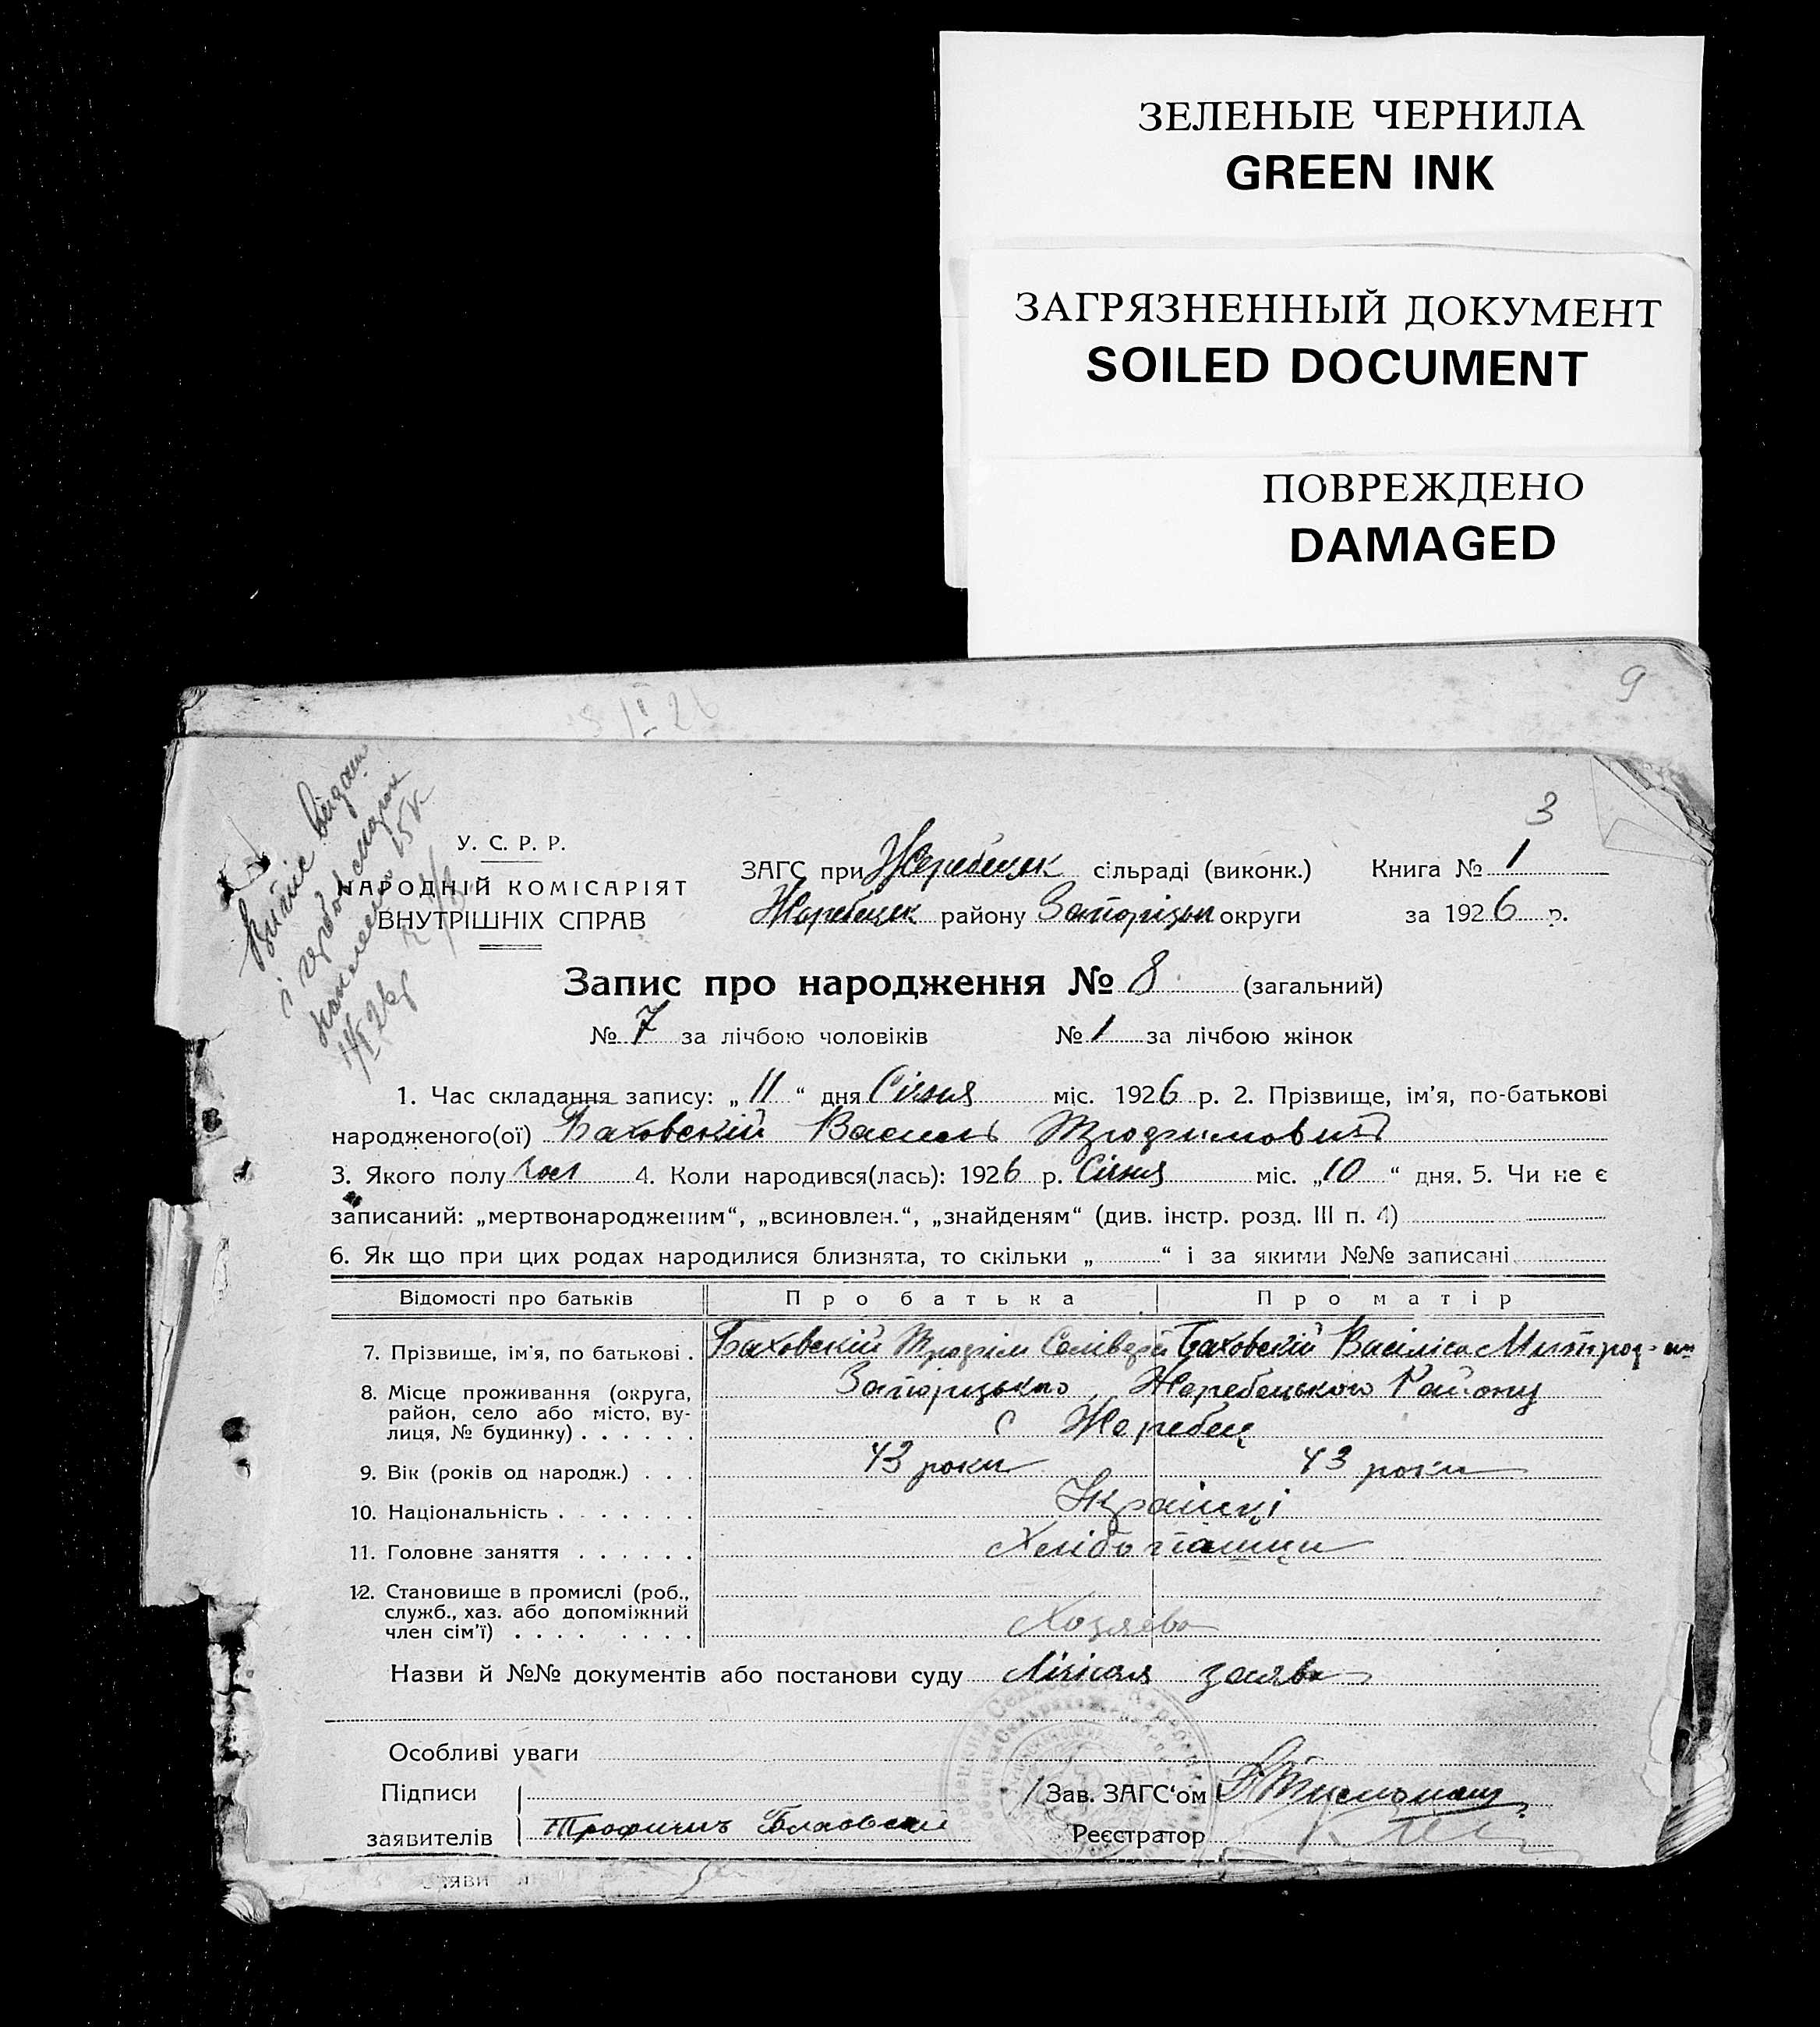 ЗЕЛЕНЫЕ ЧЕРНИЛА
GREEN INK
ЗАГРЯЗНЕННЫЙ ДОКУМЕНТ
SOILED DOCUMENT
ПОВРЕЖДЕНО
DAMAGED
9
3
У. С. Р. Р.
НАРОДНІЙ КОМІСАРІЯТ
ВНУТРІШНІХ СПРАВ
ЗАГС при Жеребецьк сільраді (виконк.) Книга № 1
Жеребецьк району Запорізьк округи за 1926 р.
Запис про народження № 8 (загальний)
№ 7 за лічбою чоловіків № 1 за лічбою жінок
1. Час складання запису: „11“ дня Січня міс. 1926 р. 2. Прізвище, ім'я, по-батькові
народженого(ої) Баховскій Василь Трохимович
3. Якого полу чол 4. Коли народився(лась): 1926 р. Січня міс. „10“ дня. 5. Чи не є
записаний: „мертвонародженим“, „всиновлен.“, „знайденям“ (див. інстр. розд. III п. 4)
6. Як що при цих родах народилися близнята, то скільки „ “ і за якими №№ записані
Відомості про батьків Про батька Про матір
7. Прізвище, ім'я, по батькові . Баховскій Трохим Баховскій Василіса
8. Місце проживання (округа, Запоріцького Жеребецького Району
район, село або місто, ву-
лиця, № будинку) . . . . . . с Жеребец
9. Вік (років од народж.) . . . 43 роки 43 роки
10. Національність . . . . . . .
11. Головне заняття . . . . . . Хлібопашци
12. Становище в промислі (роб.,
служб., хаз. або допоміжний
член сім'ї) . . . . . . . . Хозяева
Назви й №№ документів або постанови суду заява
Особливі уваги
Підписи Зав. ЗАГС'ом
заявителів Реєстратор